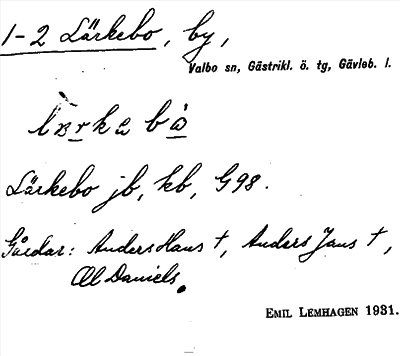 1-2 Lärkebo, by,
Valbo sn, Gästrikl. ö. tg, Gävleb. l.
Lärkebo jb, kb, G98.
Gårdar: Anders Hans †, Anders Jans †,
Ol Daniels.
EMIL LEMHAGEN 1931.